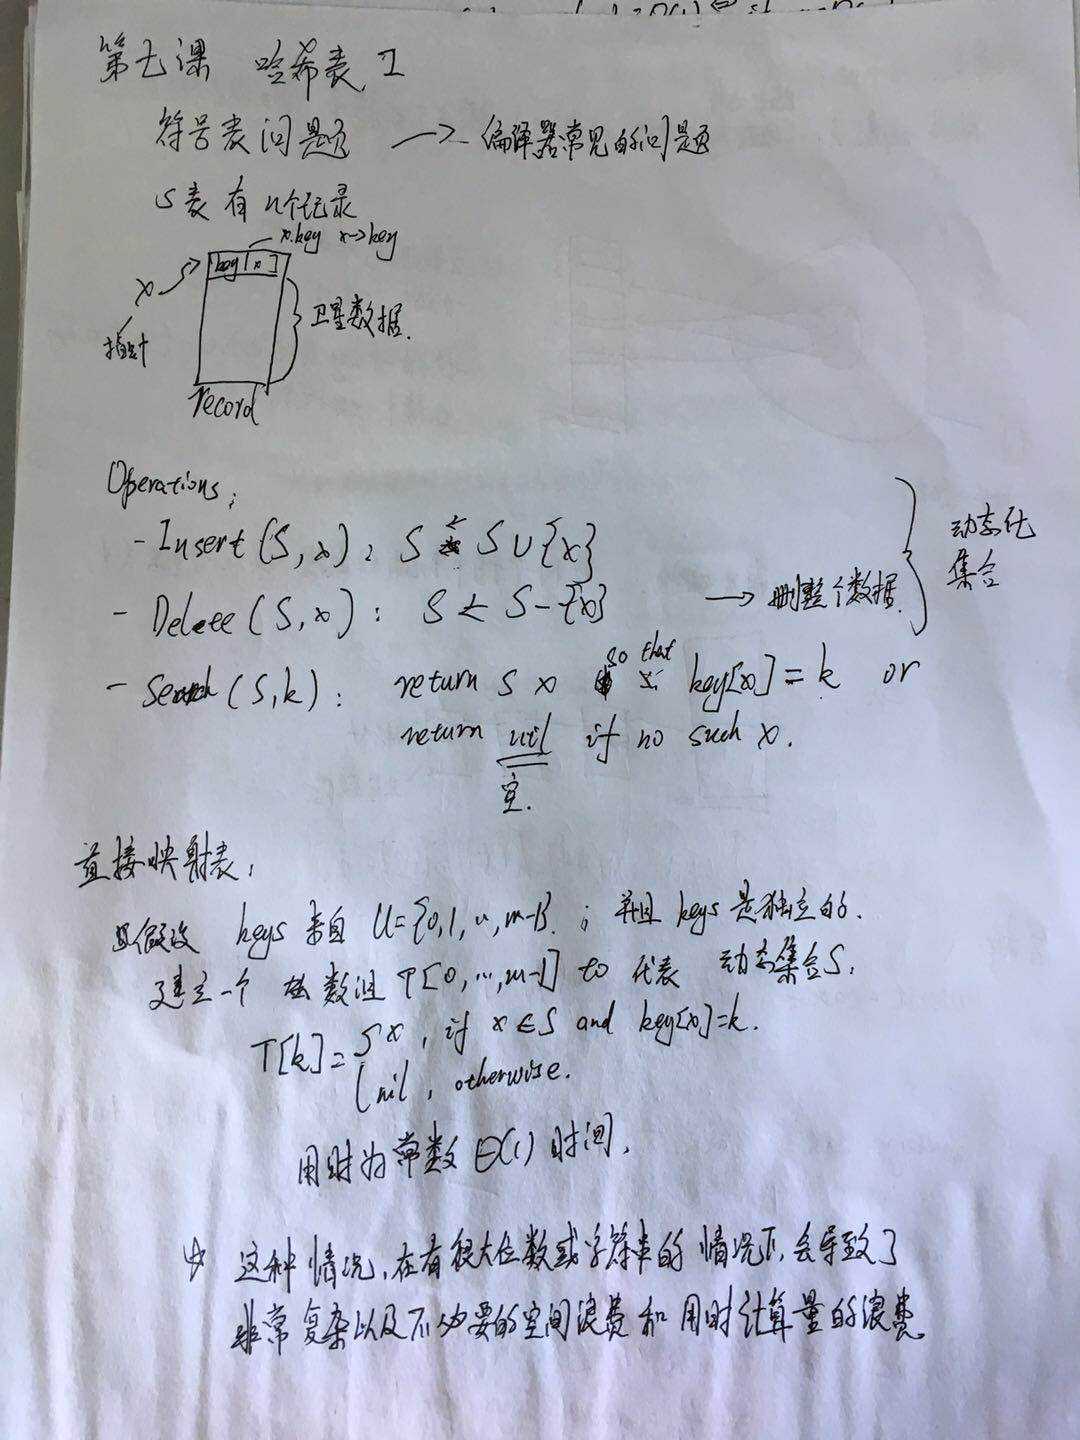 第七课 哈希表 I
符号表问题 → 编译器常见的问题
S表有n个记录
x.key x→key
key[x]
x
指针
卫星数据.
record
Operations:
- Insert(S,x): S ← S∪{x}
动态化
集合
- Delete(S,x): S ← S-{x} → 删整个数据.
so that
- Search(S,k): return S x key[x]=k or
return nil if no such x.
空.
直接映射表:
假设 keys 来自 U={0,1,…,m-1}; 并且 keys 是独立的.
建立一个 数组 T[0,…,m-1] to 代表 动态集合S.
T[k]={x, if x∈S and key[x]=k.
{nil, otherwise.
用时为常数 Θ(1) 时间.
☆ 这种情况,在有很大位数或字符串的情况下,会导致了
非常复杂以及不必要的空间浪费和用时计算量的浪费.